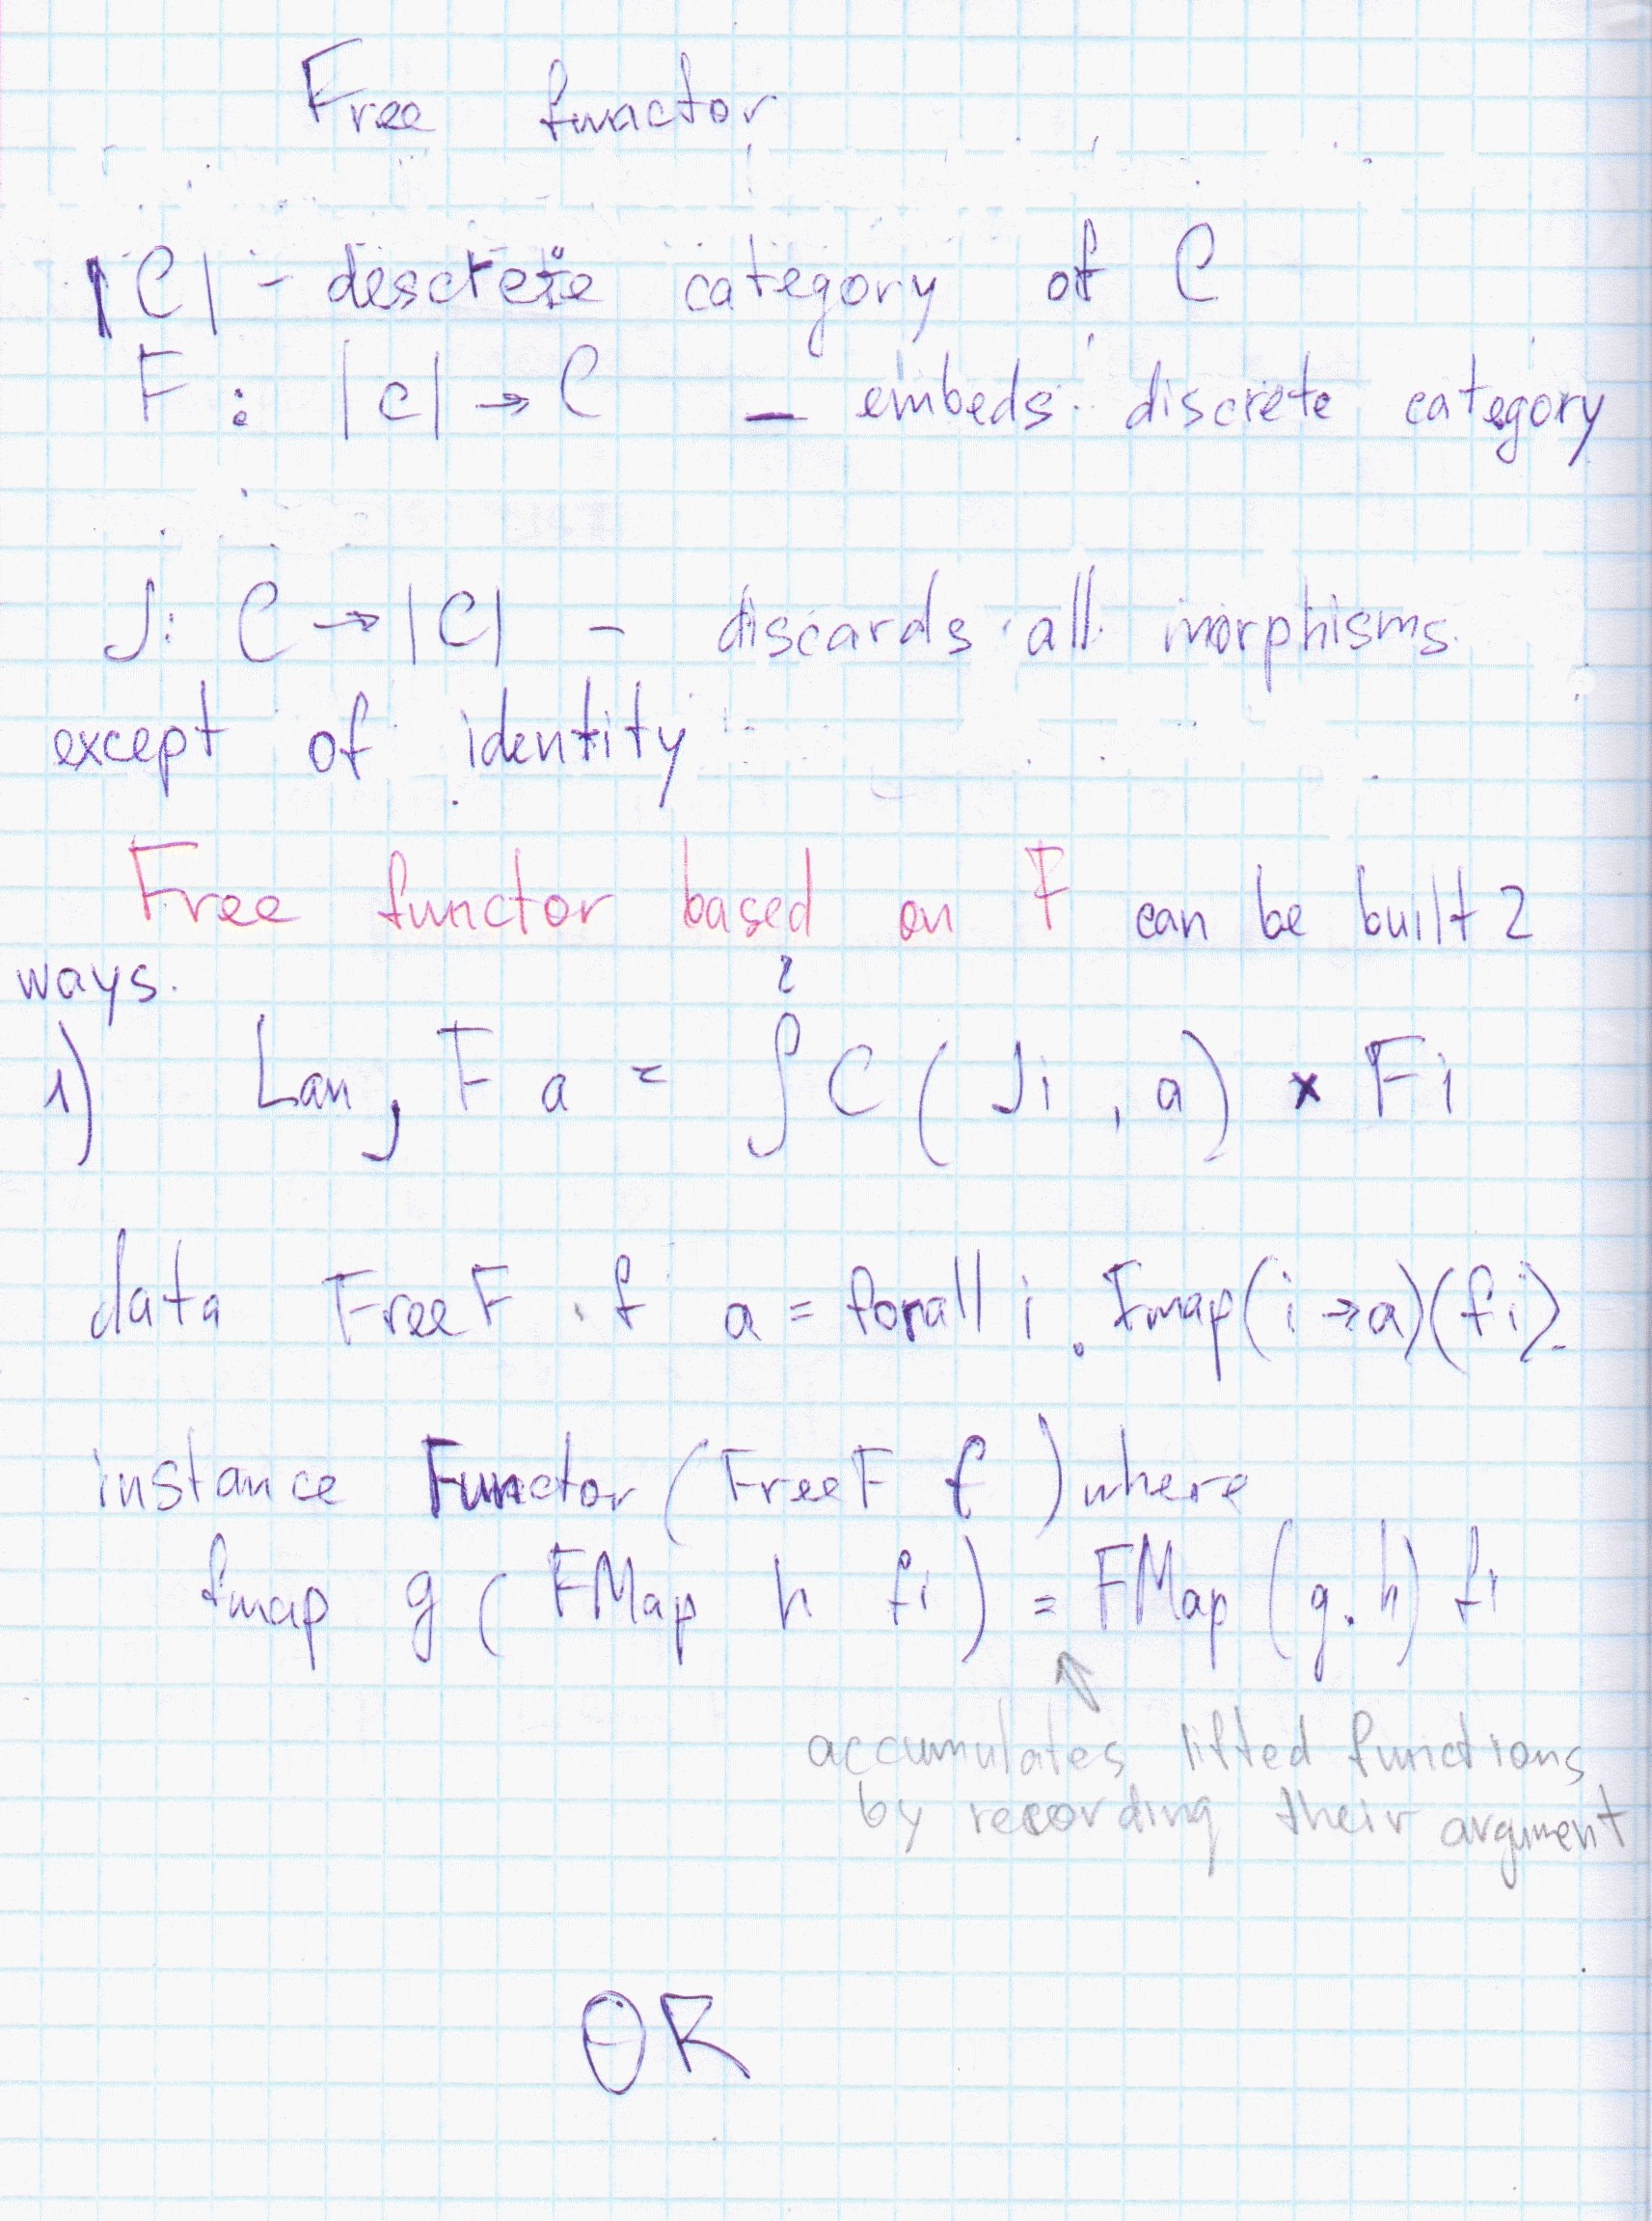 Free functor
|C| - descrete category of C
F : |C| → C — embeds discrete category
J: C → |C| - discards all morphisms
except of identity
Free functor based on F can be built 2
ways.
1) Lan_J F a = ∫^i C ( Ji , a ) × Fi
data FreeF f a = forall i . Fmap (i → a) (f i)
instance Functor (FreeF f ) where
fmap g ( FMap h fi ) = FMap (g . h) fi
↑
accumulates lifted functions
by recording their argument
OR